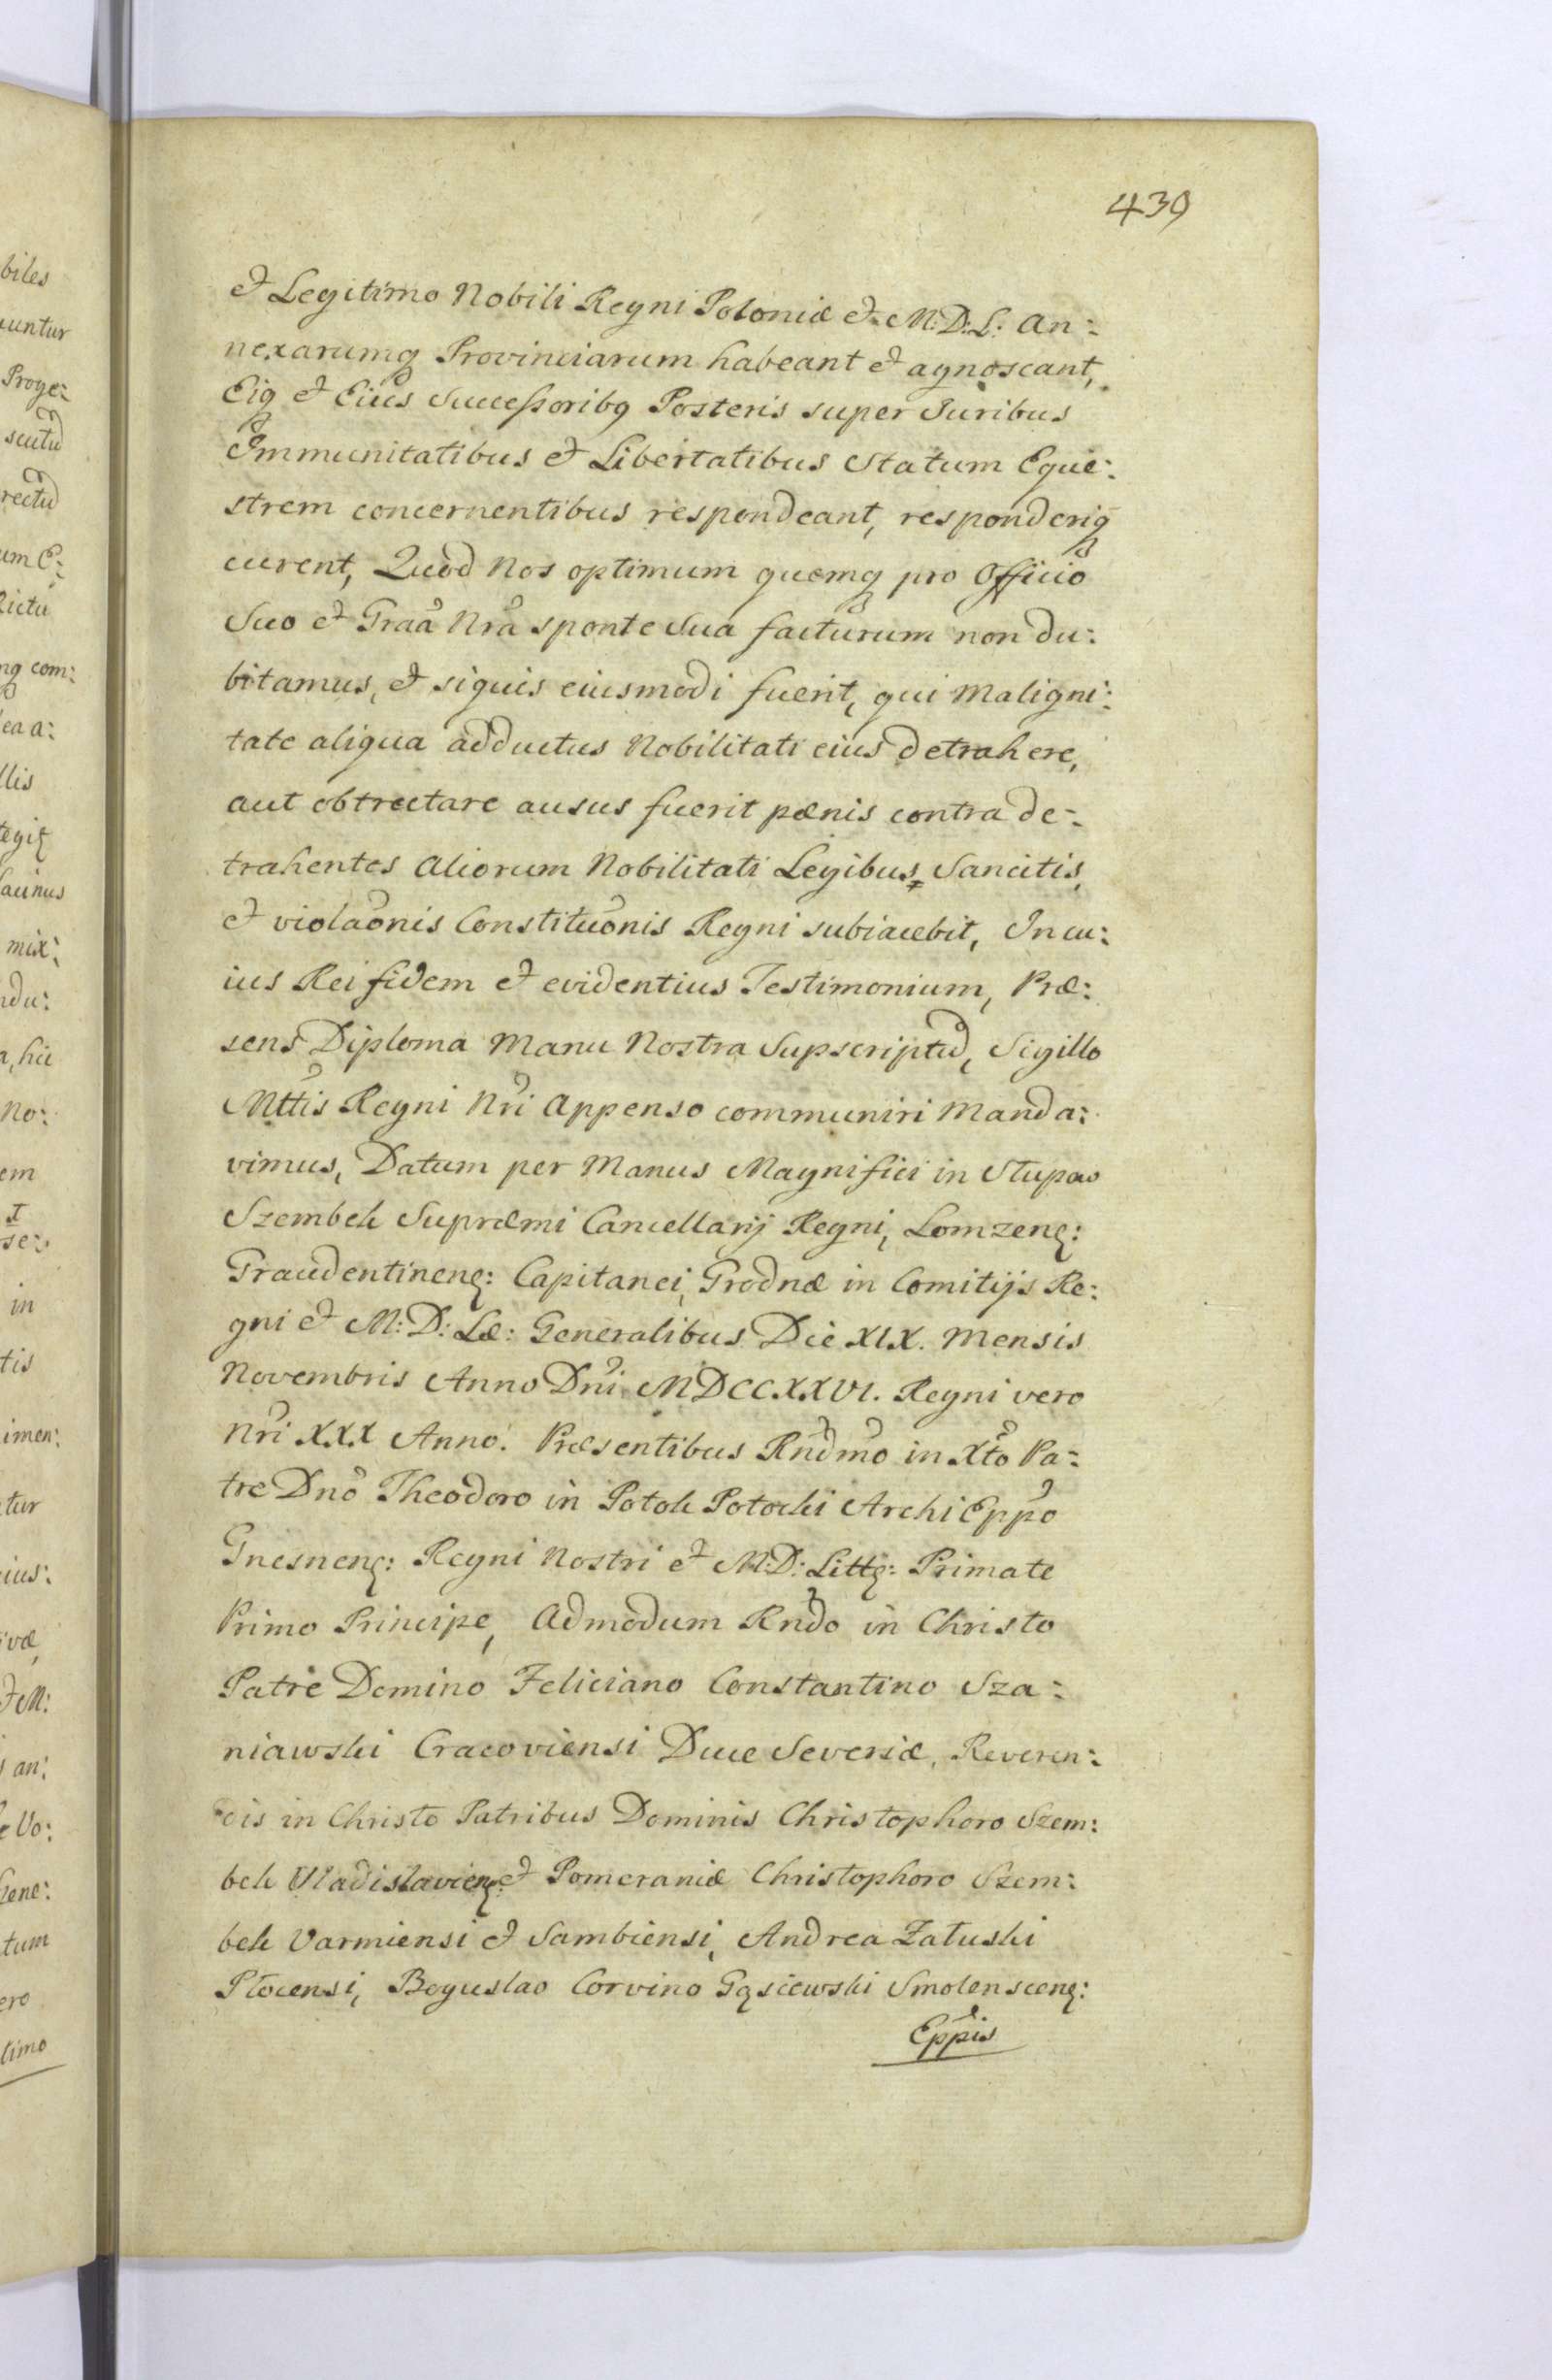 439
et Legitimo Nobili Regni Poloniæ et M: D: L: An:
nexarumq Provinciarum habeant et agnoscant,
Eiq et Eius Successoribq Posteris super Juribus
Immunitatibus et Libertatibus Statum Eque:
strem concernentibus respondeant, responderiq
curent, Quod Nos optimum quemq pro Officio
Suo et Graã Nrã sponte Sua facturum non du:
bitamus, et siquis eiusmodi fuerit, qui Maligni:
tate aliqua adductus Nobilitati eius detrahere,
aut obtrectare ausus fuerit pænis contra de:
trahentes Aliorum Nobilitati Legibus Sancitis,
et violaõnis Constituõnis Regni subiacebit, In cu:
ius Rei fidem et evidentius Testimonium, Præ:
sens Diploma Manu Nostra Supscriptũ, Sigillo
Mttis Regni Nri Appenso communiri Manda:
vimus, Datum per Manus Magnifici in Slupow
Szembek Supræmi Cancellarij Regni, Lomzenę:
Graudentinenę: Capitanei, Grodnæ in Comitijs Re:
gni et M: D: Læ: Generalibus Die XIX. Mensis
Novembris Anno Dni MDCCXXVI. Regni vero
Nri XXX Anno. Præsentibus Rndmo in Xto Pa:
tre Dno Theodoro in Potok Potocki Archi Eppo
Gnesnenę: Regni Nostri et M: D: Littę: Primate
Primo Principe, Admodum Rndo in Christo
Patre Domino Feliciano Constantino Sza:
niawski Cracoviensi Duce Severiæ, Reveren:
dis in Christo Patribus Dominis Christophoro Szem:
bek Vladislavienę: et Pomeraniæ Christophoro Szem:
bek Varmiensi et Sambiensi, Andrea Załuski
Płocensi, Boguslao Corvino Gąsiewski Smolenscenę:
Eppis
biles
untur
Proge:
scutũ
rectũ
um E:
com:
ea a:
llis
mix:
ndu:
No:
em
se:
in
tis
imen:
tur
ius:
væ,
et M:
an:
Vo:
Gene:
tum
ero
timo